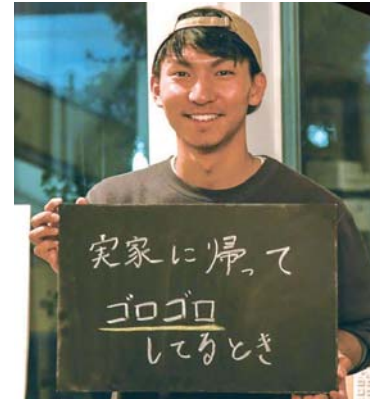 実家に帰って
ゴロゴロ
してるとき